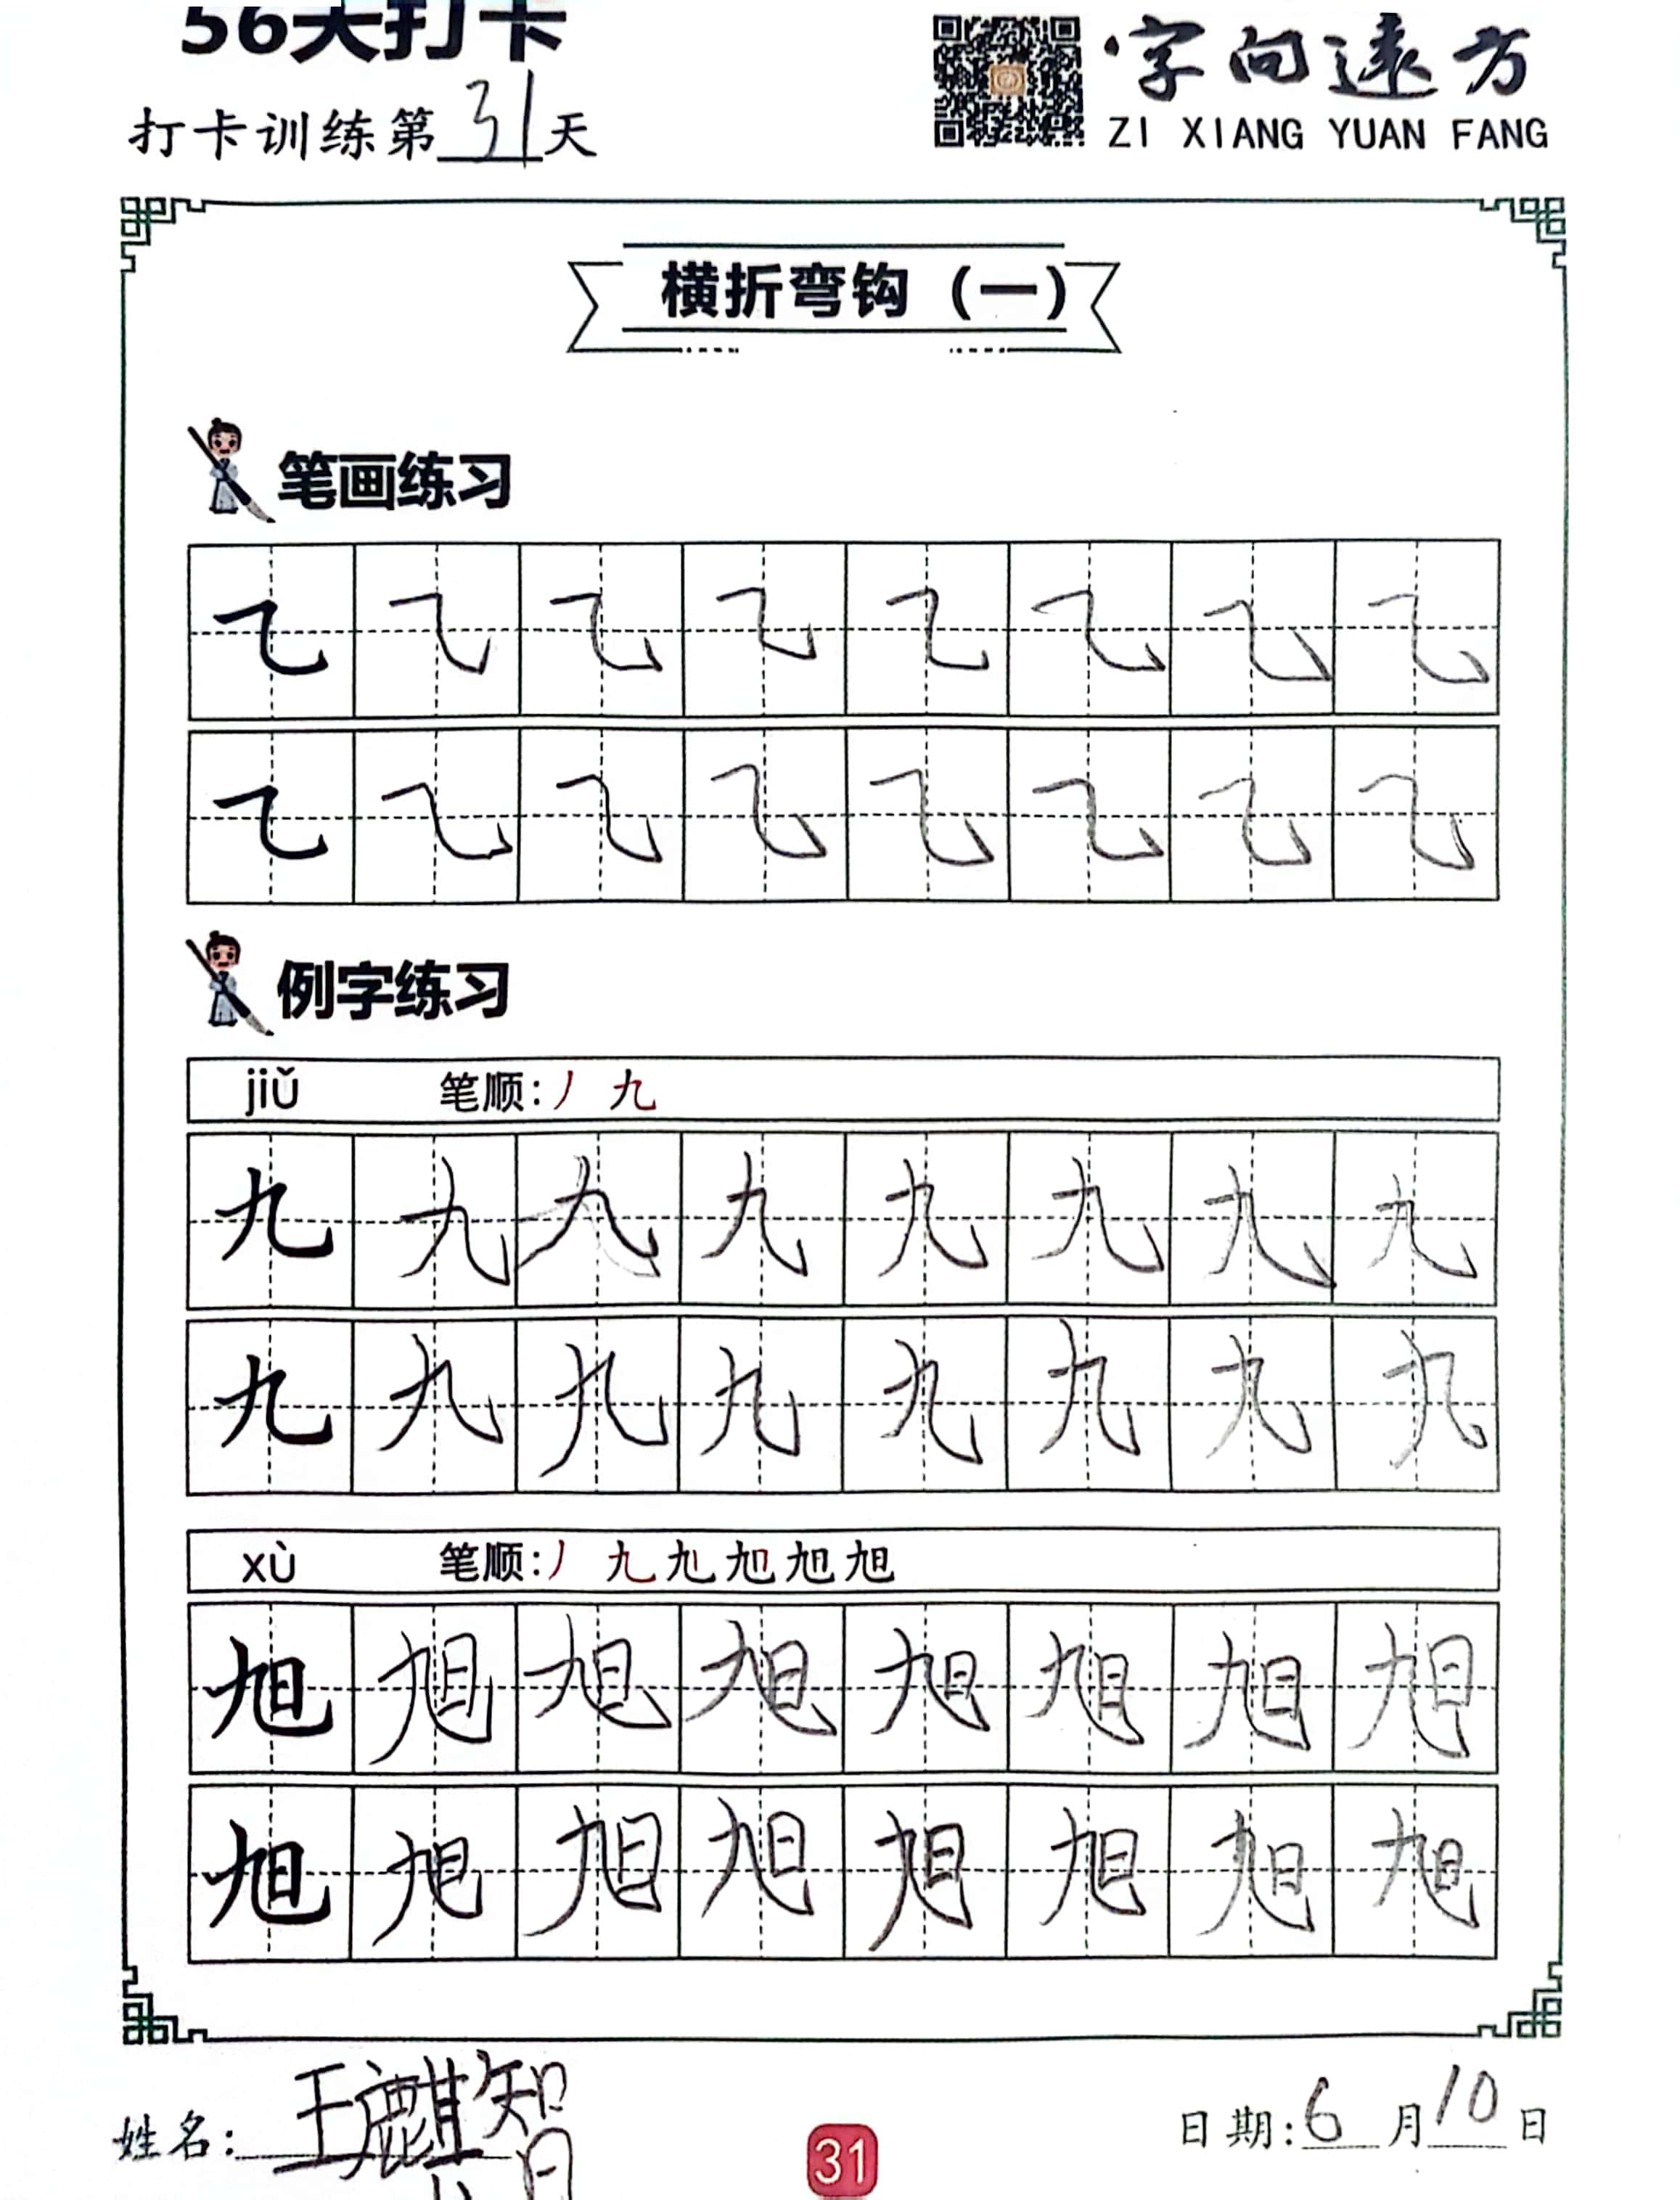 56天打卡
字向远方
打卡训练第31天
ZI XIANG YUAN FANG
横折弯钩（一）
笔画练习
㇈ ㇈ ㇈ ㇈ ㇈ ㇈ ㇈ ㇈
㇈ ㇈ ㇈ ㇈ ㇈ ㇈ ㇈ ㇈
例字练习
jiǔ 笔顺：丿 九
九 九 九 九 九 九 九 九
九 九 九 九 九 九 九 九
xù 笔顺：丿 九
旭 旭 旭 旭 旭 旭 旭 旭
旭 旭 旭 旭 旭 旭 旭 旭
姓名：王麒智
日期：6月10日
31